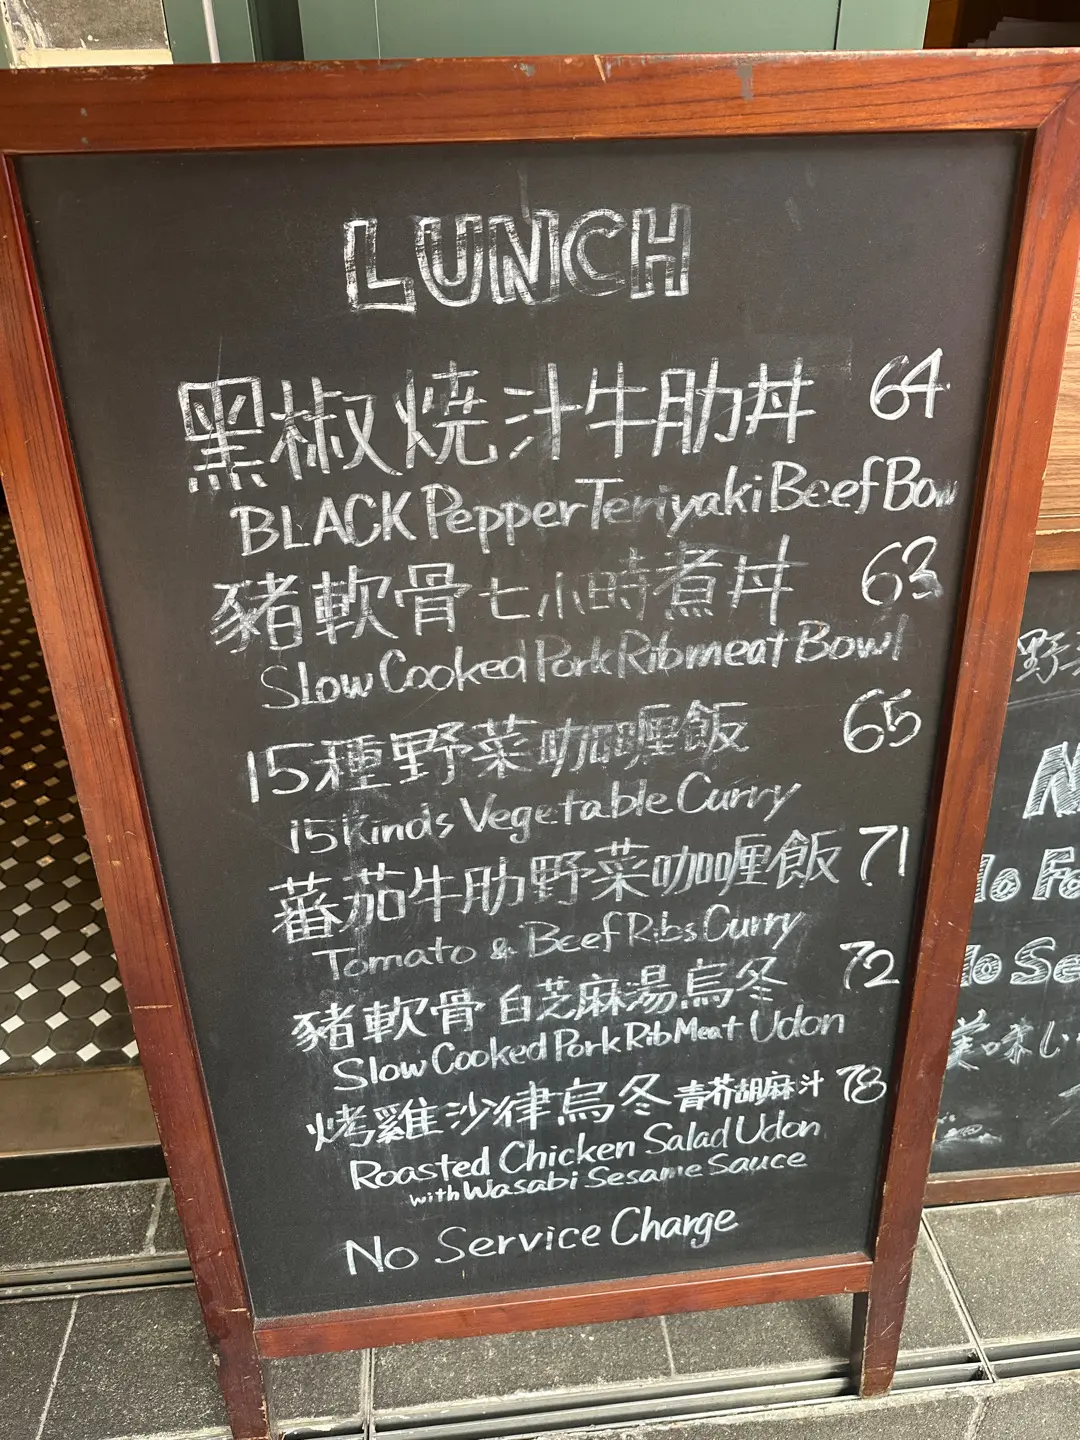 LUNCH
黑椒燒汁牛肋丼 64
BLACK Pepper Teriyaki Beef Bow
豬軟骨七小時煮丼 63
Slow Cooked Pork Ribmeat Bowl
15種野菜咖喱飯 65
15 Kinds Vegetable Curry
蕃茄牛肋野菜咖喱飯 71
Tomato & Beef Ribs Curry
豬軟骨白芝麻湯烏冬 72
Slow Cooked Pork Rib Meat Udon
烤雞沙律烏冬 青芥胡麻汁 78
Roasted Chicken Salad Udon
with Wasabi Sesame Sauce
No Service Charge
野
N
lo Fo
lo Se
美味し